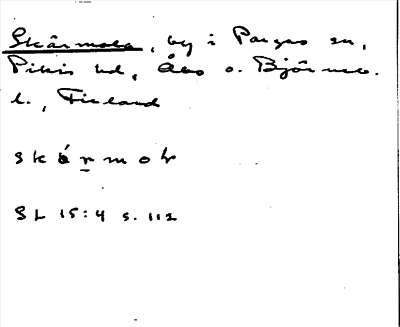 Skärmola, by i Pargas sn,
Pikis hd, Åbo o. Björneb.
l., Finland
skärmol
SL 15:4 s. 112